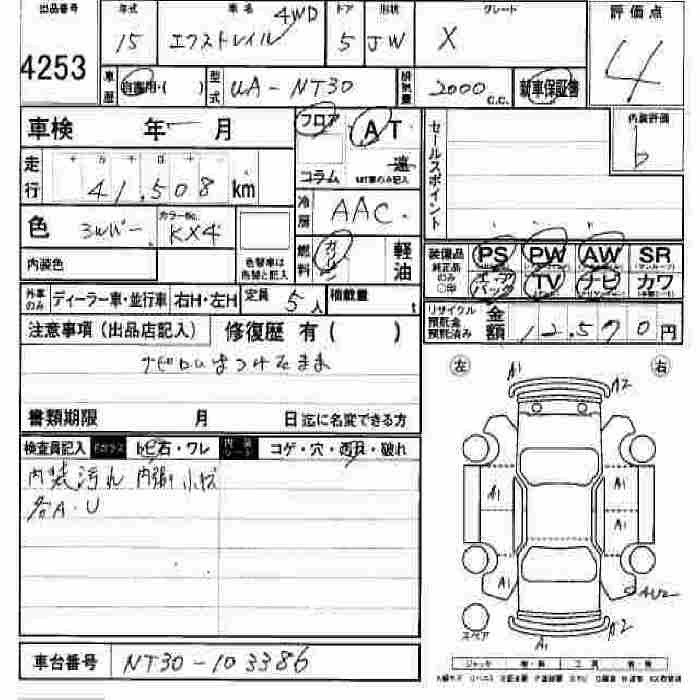 出品番号 年式 車名 4WD ドア 形状 グレード 評価点
4253 15 エクストレイル 5 JW X 4
車歴 自家用・( ) 型式 UA-NT30 排気量 2000 c.c. 新車保証書
車検 年 月 フロア AT セールスポイント 内装評価
コラム 速 b
MT車のみ記入
走行 41,508 km
冷房 AAC
色 カラーNo. KX4
燃料 ガソリン 軽油
内装色 色替車は色替と記入
装備品 純正品のみ○印 PS PW AW SR
エアバッグ TV ナビ カワ
外車のみ ディーラー車・並行車 右H・左H 定員 5人 積載量 t
リサイクル預託金預託済み 金額 12,570円
注意事項(出品店記入) 修復歴 有( )
左 右
A1 A2
書類期限 月 日迄に名変できる方
検査員記入 Fガラス 石・ワレ 内装シート コゲ・穴・破れ
内装汚れ 内張り小キズ
各A・U
A1 A1
A1
A1 AU2
スペア
A1 A2
車台番号 NT30-103386
ジャッキ 工具